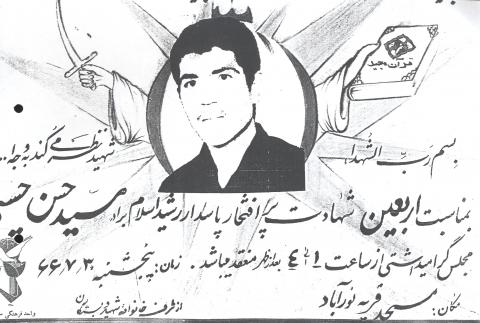 قرآن مجید
بسم رب الشهدا
شهید نظر میکند به وجه ا...
بمناسبت اربعین شهادت پر افتخار پاسدار رشید اسلام برادر سید حسن
مجلس گرامیداشتی از ساعت ۲ الی ۴ بعد از ظهر منعقد میباشد. زمان: پنجشنبه ۶۶٫۷٫۳۰
مکان: مسجد قریه نورآباد
از طرف خانواده شهید و
واحد فرهنگی